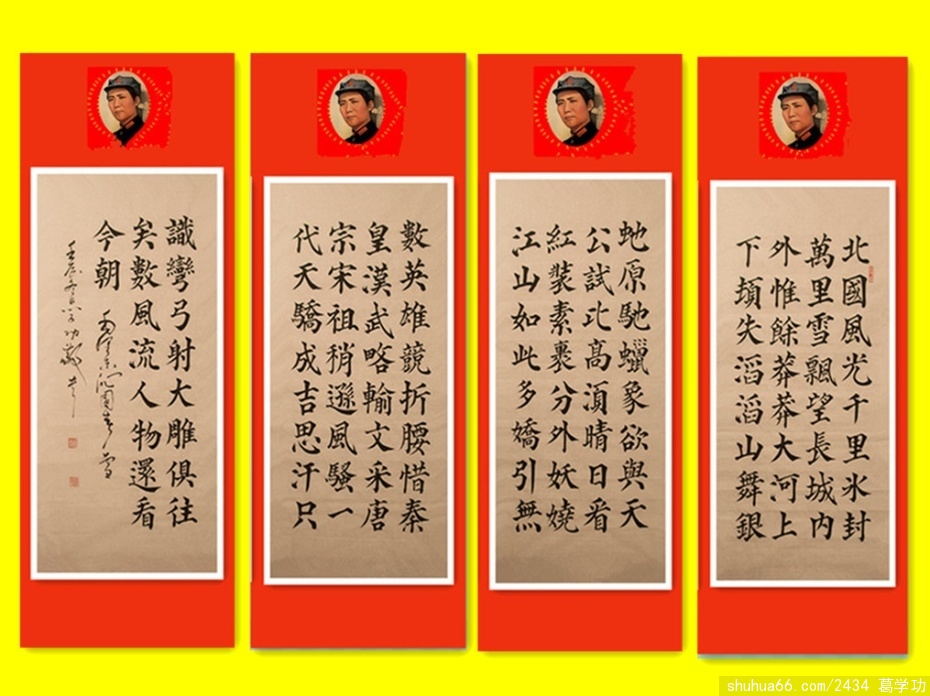 北國風光千里氷封
萬里雪飄望長城内
外惟餘莽莽大河上
下頓失滔滔山舞銀
虵原馳蠟象欲與天
公試比高湏晴日看
紅裝素裹分外妖嬈
江山如此多嬌引無
數英雄競折腰惜秦
皇漢武略輸文采唐
宗宋祖稍遜風騷一
代天驕成吉思汗只
識彎弓射大雕俱往
矣數風流人物還看
今朝
毛澤東沁園春雪
shuhua66.com/2434 葛学功